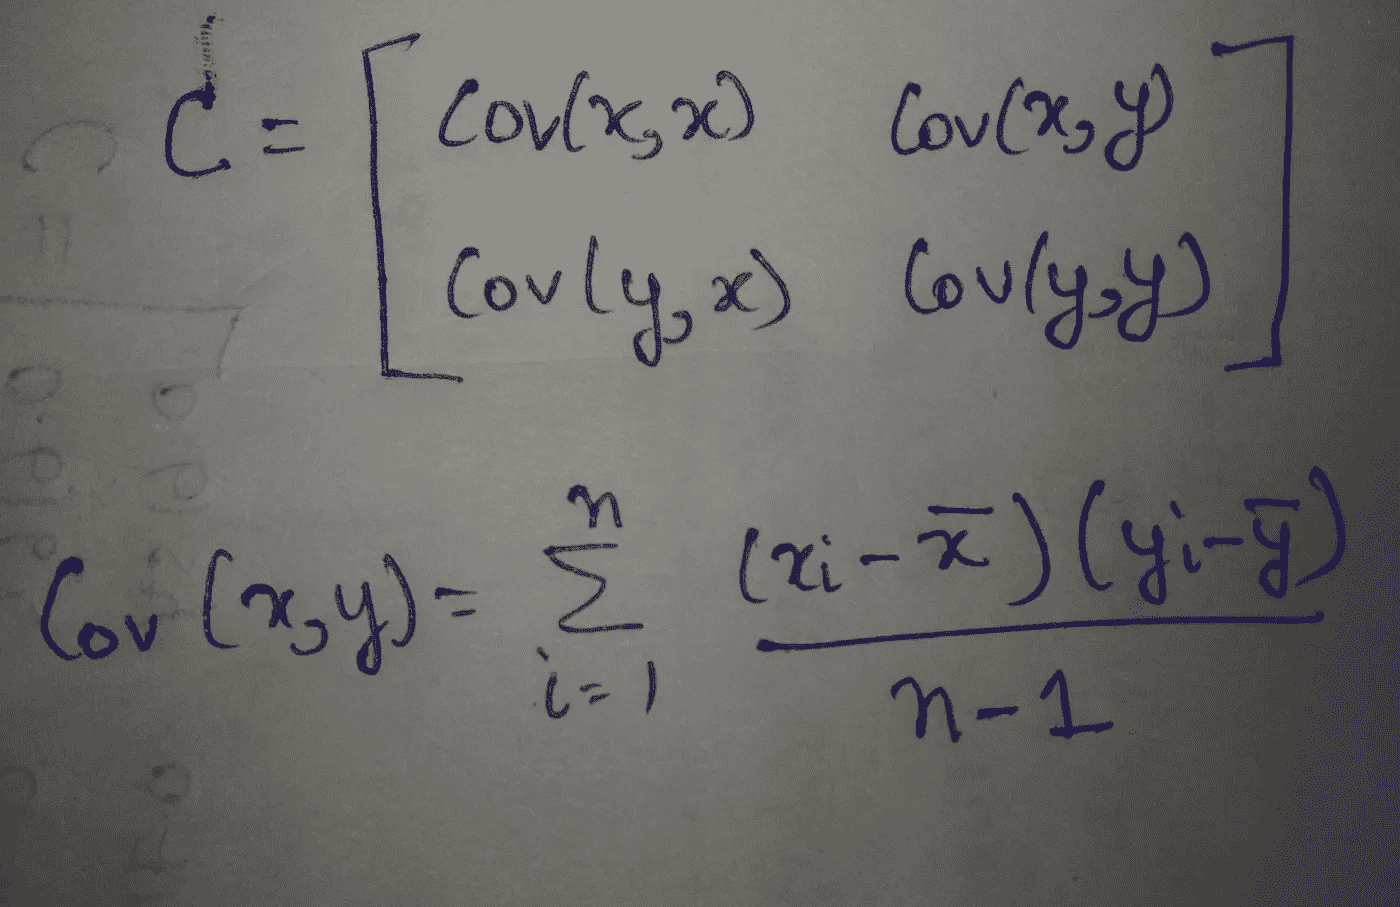 C = [ Cov(x,x) Cov(x,y)
Cov(y,x) Cov(y,y) ]
Cov (x,y) = n∑i=1 (xi - x̄)(yi - ȳ) / n-1